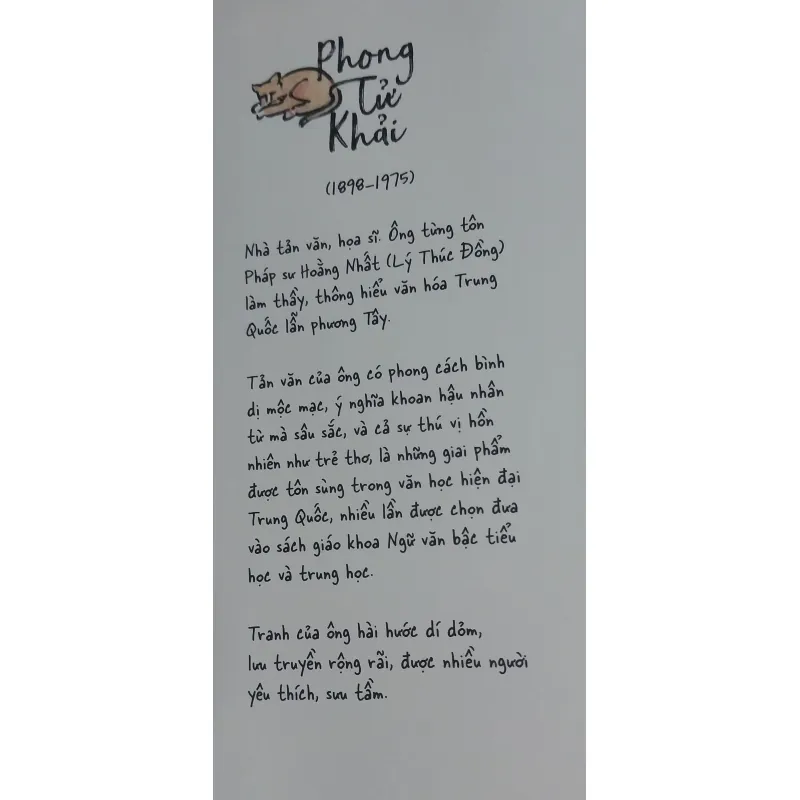 Phong
Tử
Khải
(1898-1975)
Nhà tản văn, họa sĩ. Ông từng tôn
Pháp sư Hoằng Nhất (Lý Thúc Đồng)
làm thầy, thông hiểu văn hóa Trung
Quốc lẫn phương Tây.
Tản văn của ông có phong cách bình
dị mộc mạc, ý nghĩa khoan hậu nhân
từ mà sâu sắc, và cả sự thú vị hồn
nhiên như trẻ thơ, là những giai phẩm
được tôn sùng trong văn học hiện đại
Trung Quốc, nhiều lần được chọn đưa
vào sách giáo khoa Ngữ văn bậc tiểu
học và trung học.
Tranh của ông hài hước dí dỏm,
lưu truyền rộng rãi, được nhiều người
yêu thích, sưu tầm.